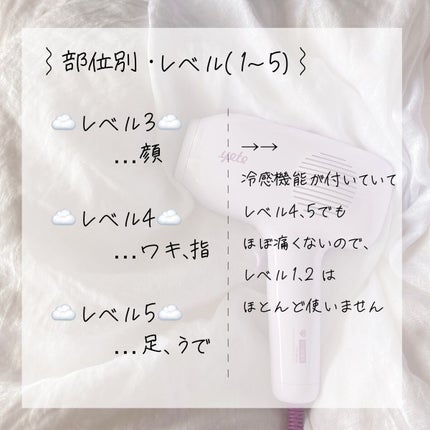 部位別・レベル(1~5)
☁️レベル3☁️
...顔
☁️レベル4☁️
...ワキ、指
☁️レベル5☁️
...足、うで
→→
冷感機能が付いていて
レベル4、5でも
ほぼ痛くないので、
レベル1、2は
ほとんど使いません